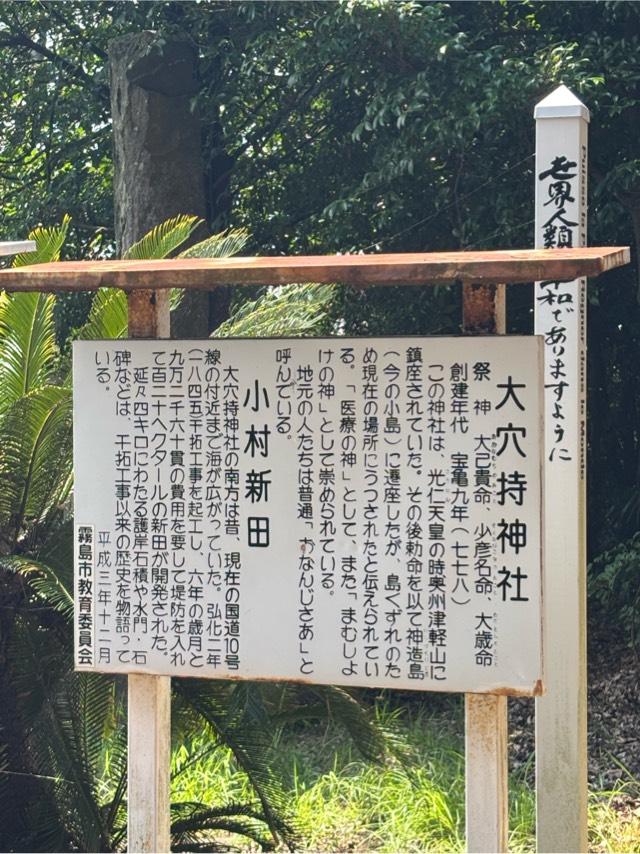 大穴持神社
祭神 大己貴命、少彦名命、大歳命
創建年代 宝亀九年(七七八)
この神社は、光仁天皇の時奥州津軽山に
鎮座されていた。その後勅命を以て神造島
(今の小島)に遷座したが、島くずれのた
め現在の場所にうつされたと伝えられてい
る。「医療の神」として、また「まむしよ
けの神」として崇められている。
地元の人たちは普通「おなんじさあ」と
呼んでいる。
小村新田
大穴持神社の南方は昔、現在の国道10号
線の付近まで海が広がっていた。弘化二年
(一八四五干拓工事を起工し、六年の歳月と
九万二千六十貫の費用を要して堤防を入れ
て百二十ヘクタールの新田が開発された。
延々四キロにわたる護岸石積や水門・石
碑などは、干拓工事以来の歴史を物語って
いる。
平成三年十二月
霧島市教育委員会
世界人類 平和でありますように